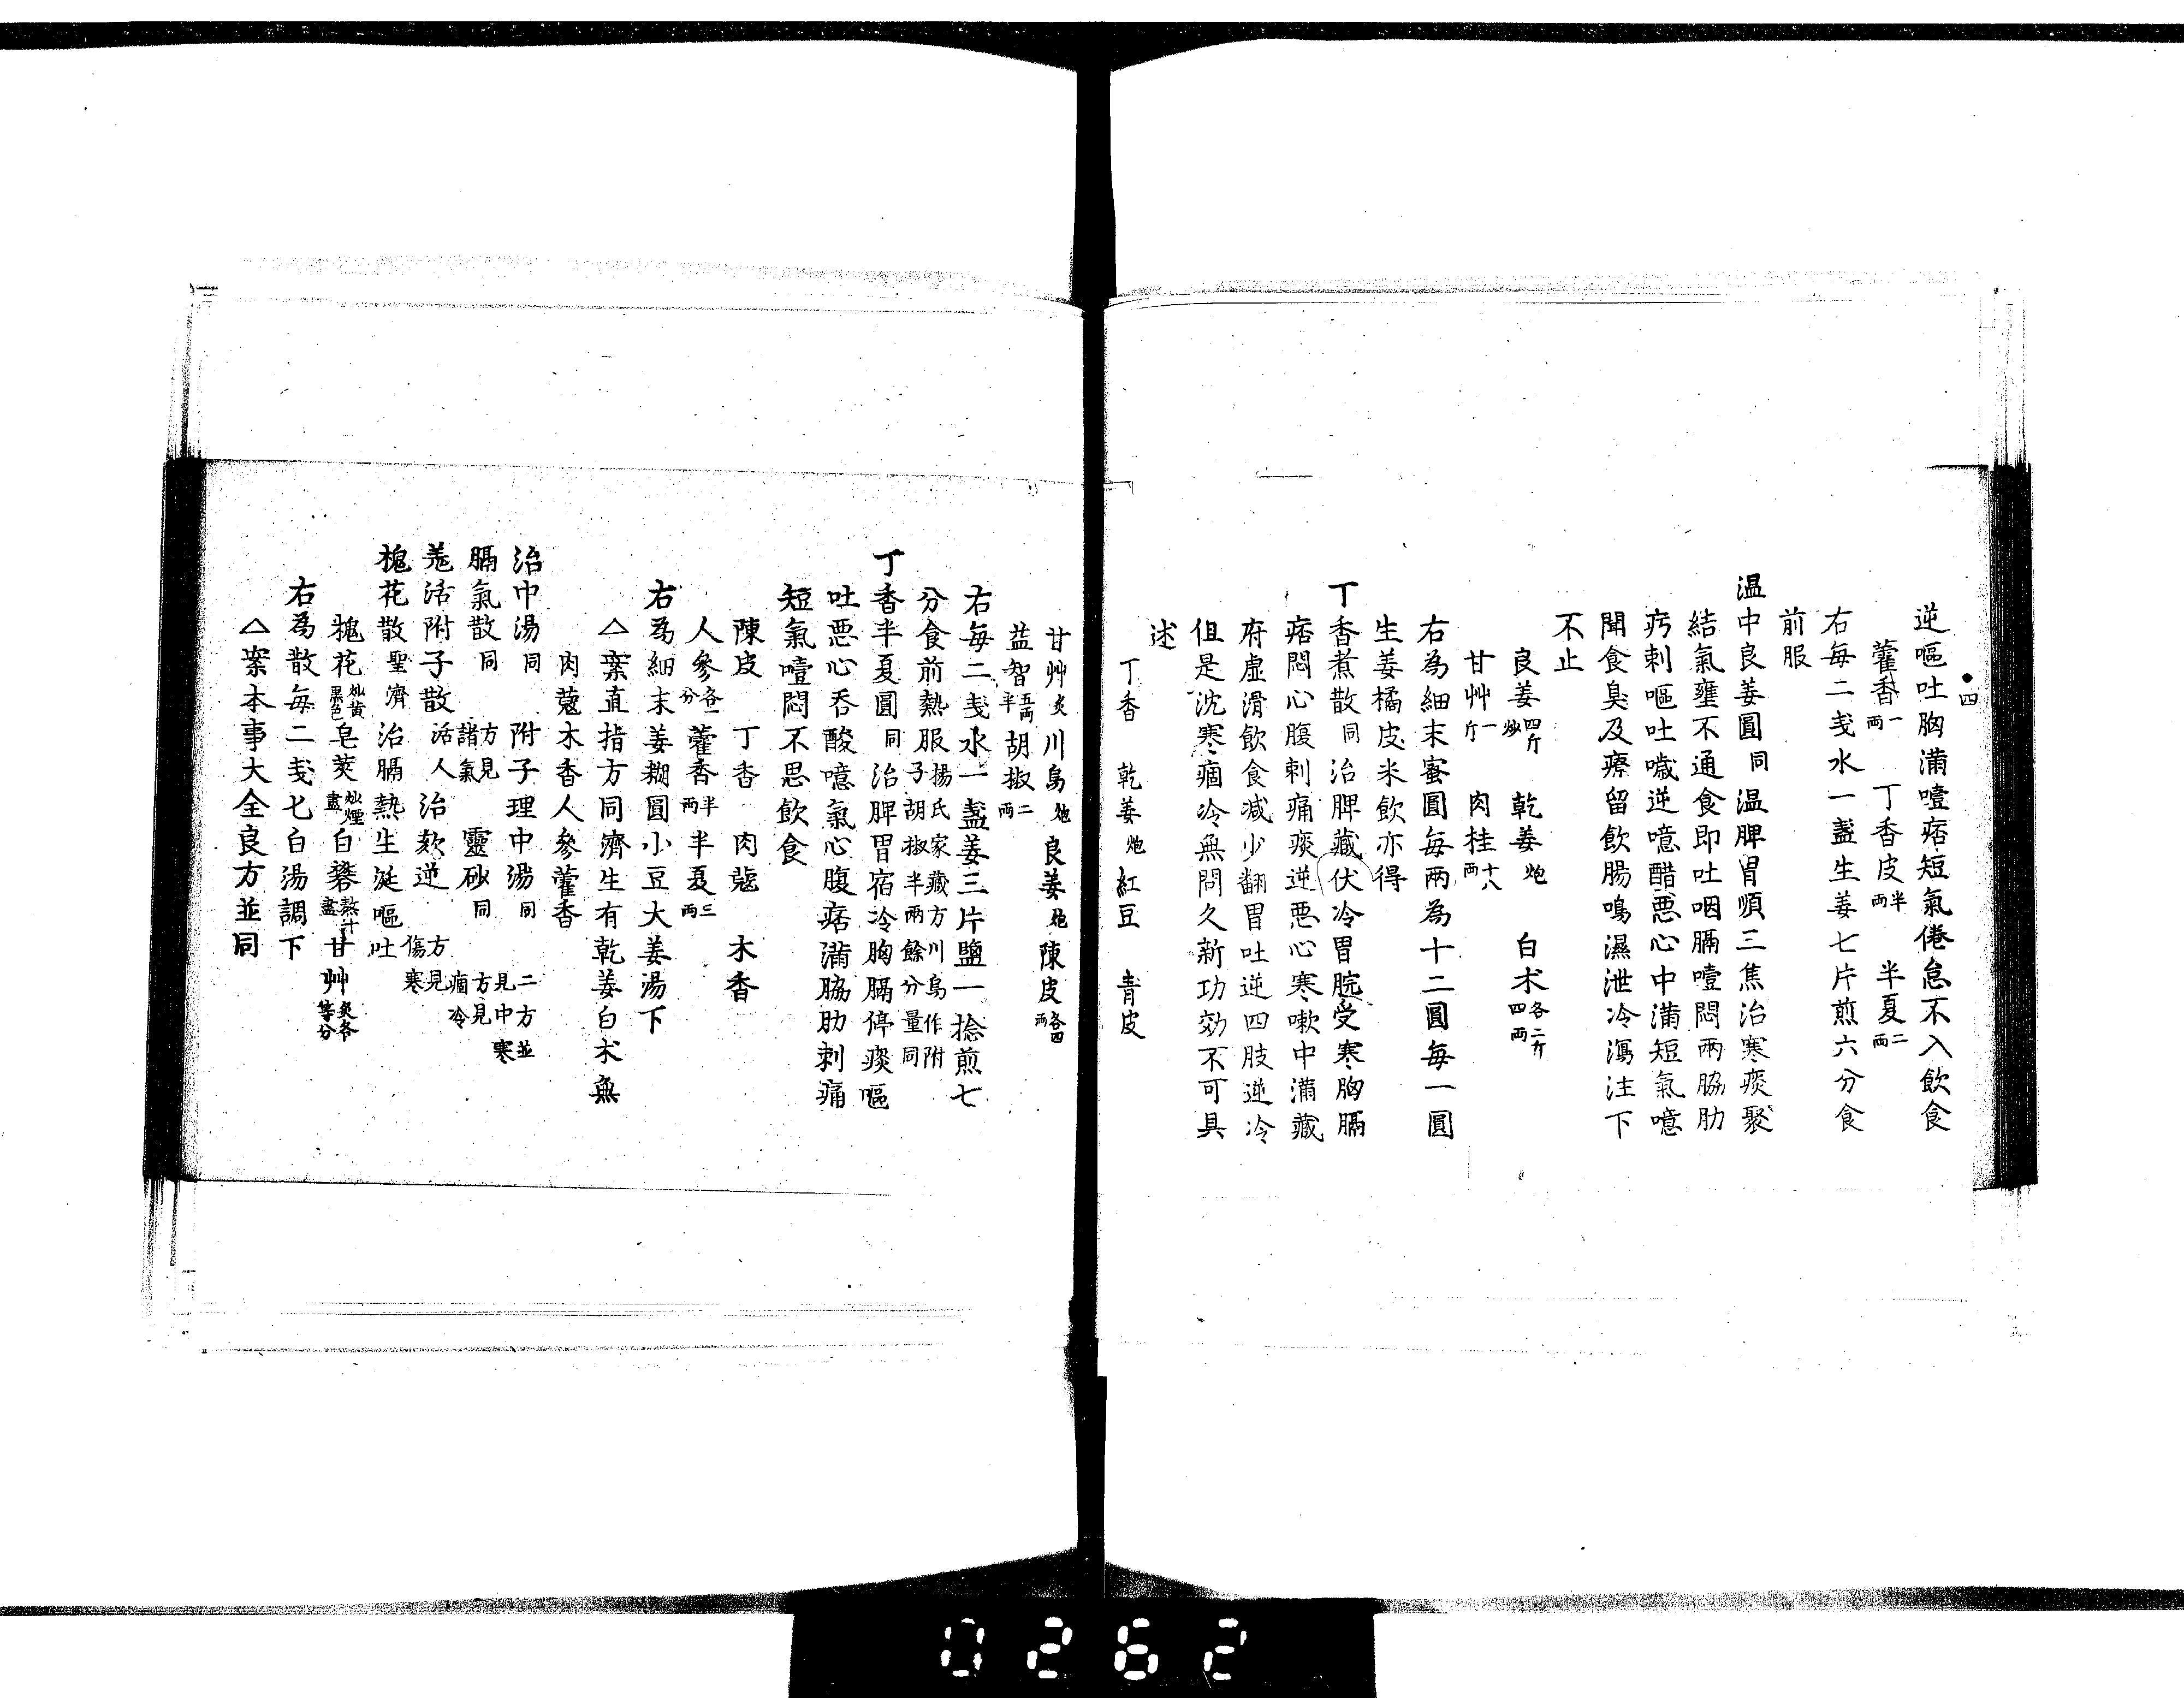 四
逆嘔吐胸滿噎痞短氣倦怠不入飲食
藿香一兩　丁香皮半兩　半夏二兩
右每二戔水一盞生姜七片煎六分食
前服
温中良姜圓同温脾胃順三焦治寒痰聚
結氣壅不通食即吐咽膈噎悶兩脇肋
㽲刺嘔吐噦逆噫醋惡心中滿短氣噫
聞食臭及療留飲腸鳴濕泄冷瀉注下
不止
良姜四斤炒　乾姜炮　白朮各二斤四兩
甘艸一斤　肉桂十八兩
右為細末蜜圓每兩為十二圓每一圓
生姜橘皮米飲亦得
丁香煮散同治脾藏伏冷胃脘受寒胸膈
痞悶心腹刺痛痰逆惡心寒嗽中滿藏
府虛滑飲食减少翻胃吐逆四肢逆冷
但是沈寒痼冷無問久新功効不可具
述
丁香　乾姜炮　紅豆　青皮
甘艸炙　川烏炮　良姜炮　陳皮各四兩
益智五兩半　胡椒二兩
右每二戔水一盞姜三片鹽一捻煎七
分食前熱服楊氏家藏方川烏作附子胡椒半兩餘分量同
丁香半夏圓同治脾胃宿冷胸膈停痰嘔
吐惡心吞酸噫氣心腹痞滿脇肋刺痛
短氣噎悶不思飲食
陳皮　丁香　肉蔻　木香
人參各一分　藿香半兩　半夏三兩
右為細末姜糊圓小豆大姜湯下
△案直指方同濟生有乾姜白朮無
肉蔻木香人參藿香
治中湯同　附子理中湯同　二方並見中寒
膈氣散同　方見諸氣　靈砂同　方見痼冷
羗活附子散活人　治欬逆　方見傷寒
槐花散聖濟　治膈熱生涎嘔吐
槐花炒黄黑色　皂莢炒煙盡　白礬熬汁盡　甘艸炙各等分
右為散每二戔匕白湯調下
△案本事大全良方並同
0262